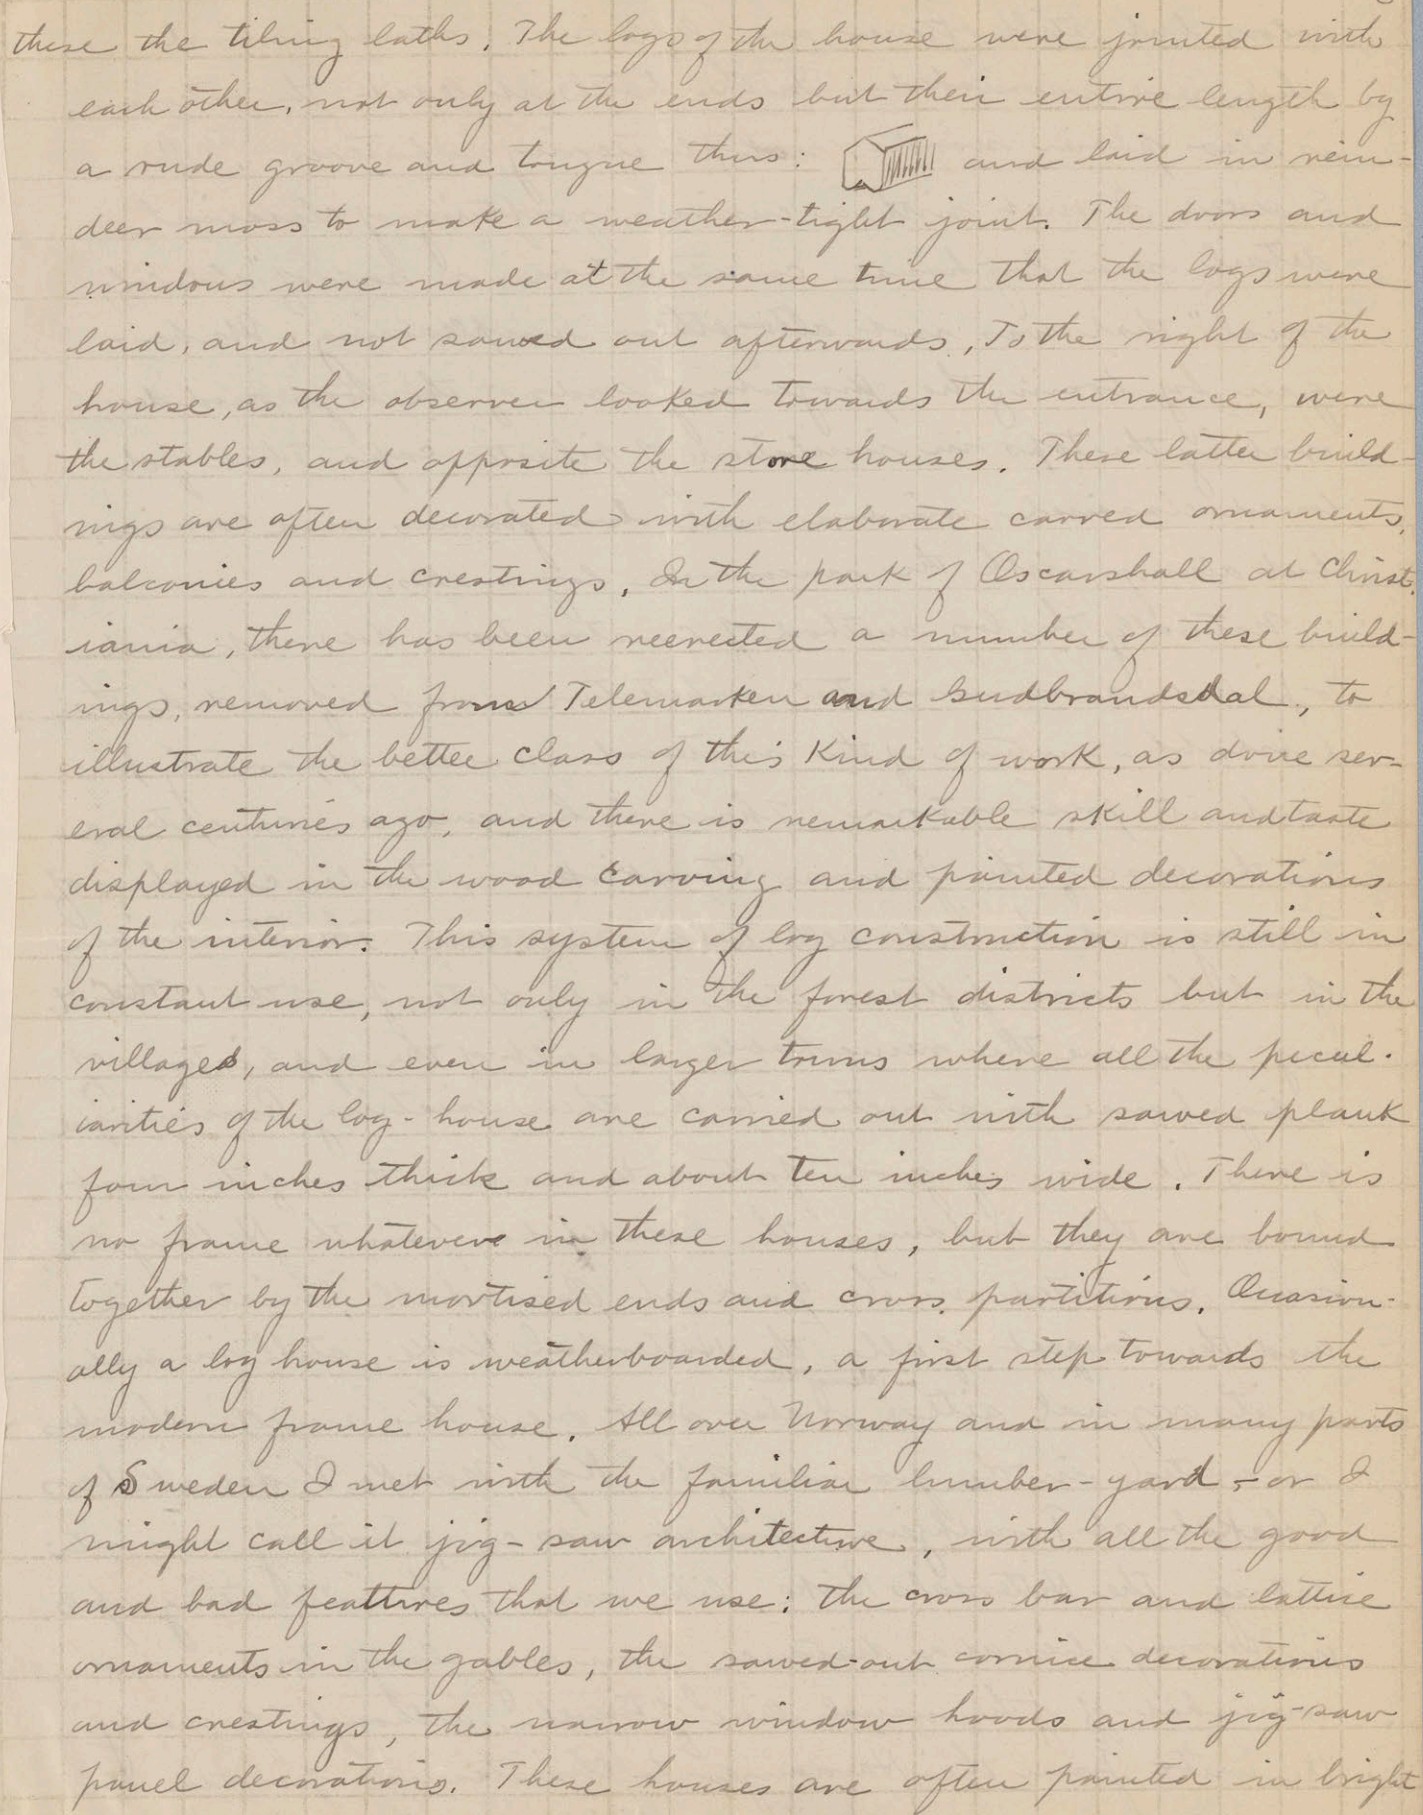 these the tiling laths. The logs of the house were jointed with
each other, not only at the ends but their entire length by
a rude groove and tongue thus: and laid in rein-
deer moss to make a weather-tight joint. The doors and
windows were made at the same time that the logs were
laid, and not sawed out afterwards. To the right of the
house, as the observer looked towards the entrance, were
the stables, and opposite the store houses. These latter build-
ings are often decorated with elaborate carved ornaments,
balconies and crestings. In the park of Oscarshall at Christ-
iania, there has been reerected a number of these build-
ings, removed from Telemarken and Gudbrandsdal, to
illustrate the better class of this kind of work, as done sev-
eral centuries ago, and there is remarkable skill and taste
displayed in the wood carving and painted decorations
of the interior. This system of log construction is still in
constant use, not only in the forest districts but in the
villages, and even in larger towns where all the pecul-
iarities of the log-house are carried out with sawed plank
four inches thick and about ten inches wide. There is
no frame whatever in these houses, but they are bound
together by the mortised ends and cross partitions. Occasion-
ally a log house is weatherboarded, a first step towards the
modern frame house. All over Norway and in many parts
of Sweden I met with the familiar lumber-yard, - or I
might call it jig-saw architective, with all the good
and bad feattires that we use: the cross bar and lattice
ornaments in the gables, the sawed-out cornice decorations
and crestings, the narrow window hoods and jig-saw
panel decorations. These houses are often painted in bright